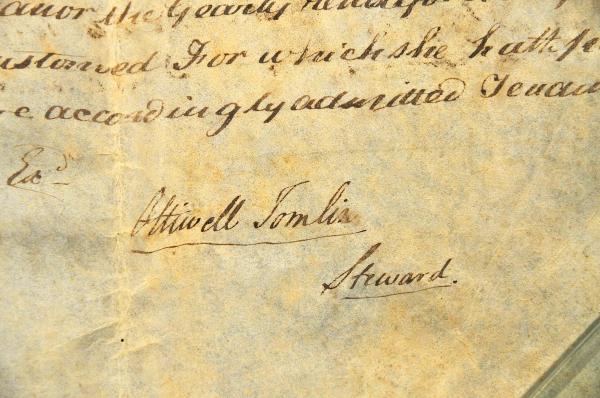 the Yearly
ustomed For which she hath
accordingly admitted Tenan
Exd
Ottiwell Tomlin
Steward.